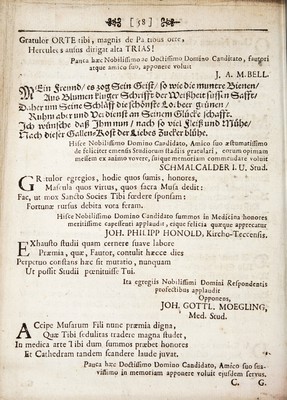 [ 38 ]
Gratulor ORTE tibi, magnis de Partibus orte,
Hercules ausus dirigat alta TRIAS!
Pauca hæc Nobilissimo ac Doctissimo Domino Candidato, fautori
atque amico suo, apponere voluit
J. A. M. BELL.
MEin Freund/ es zog Sein Geist/ so wie die muntre Bienen/
Aus Blumen kluger Schrifft der Weißheit süssen Safft/
Daher um Seine Schläff die schönste Lorbeer grünen/
Ruhm aber und Verdienst an Seinem Glücke schafft.
Ich wünsche daß Ihm nun/ nach so viel Fleiß und Mühe/
Nach dieser Gallen-Kost der Liebes Zucker blühe.
Hisce Nobilissimo Domino Candidato, Amico suo æstumatissimo
de feliciter emensis Studiorum stadiis gratulari, eorum opimam
messem ex animo vovere, suique memoriam commendare voluit
SCHMALCALDER I. U. Stud.
GRatulor egregios, hodie quos sumis, honores,
Mascula quos virtus, quos sacra Musa dedit:
Fac, ut mox Sancto Socies Tibi fœdere sponsam:
Fortunæ rursus debita vota feram.
Hisce Nobilissimo Domino Candidato summos in Medicina honores
meritissime capessenti applaudit, eique felicia quæque apprecatur
JOH. PHILIPP HONOLD, Kircho-Teccensis.
EXhausto studii quam cernere suave labore
Præmia, quæ, Fautor, contulit hæcce dies
Perpetuo constans hæc sic mutatio, nunquam
Ut possit Studii pœnituisse Tui.
Ita egregiis Nobilissimi Domini Respondentis
profectibus applaudit
Opponens,
JOH. GOTTL. MOEGLING,
Med. Stud.
ACcipe Musarum Fili nunc præmia digna,
Quæ Tibi sedulitas tradere magna studet,
In medica arte Tibi dum summos præbet honores
Et Cathedram tandem scandere laude juvat.
Pauca hæc Doctissimo Domino Candidato, Amico suo suavissimo
in memoriam apponere voluit ejusdem servus.
C. G.